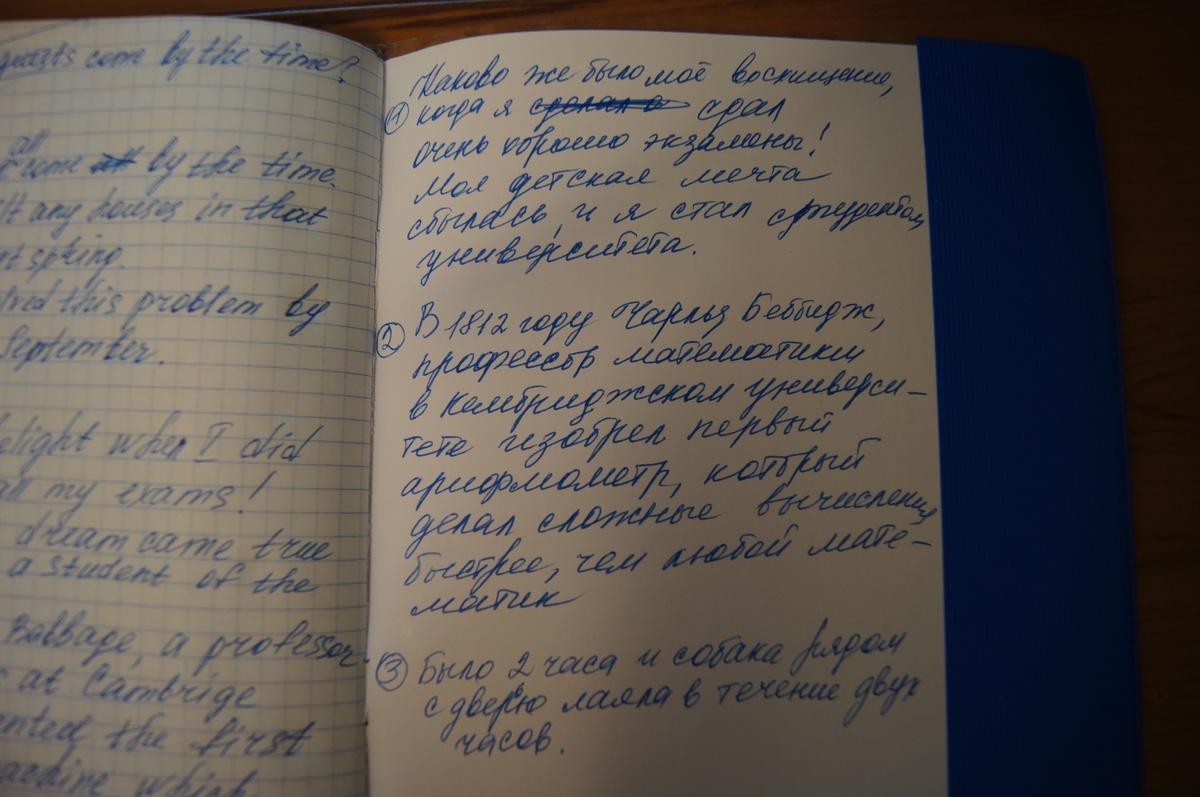 come by the time?
all
come by the time.
any houses in that
spring.
this problem by
September.
when I did
all my exams!
dream came true
a student of the
Babbage, a professor
at Cambrige
the first
which
Каково же было моё восхищение,
① когда я сдал
очень хорошо экзамены!
Моя детская мечта
сбылась, и я стал студентом
университета.
② В 1812 году Чарльз Беббидж,
профессор математики
в Кембриджском универси-
тете изобрел первый
арифмометр, который
делал сложные вычисления
быстрее, чем любой мате-
матик
③ Было 2 часа и собака рядом
с дверью лаяла в течение двух
часов.